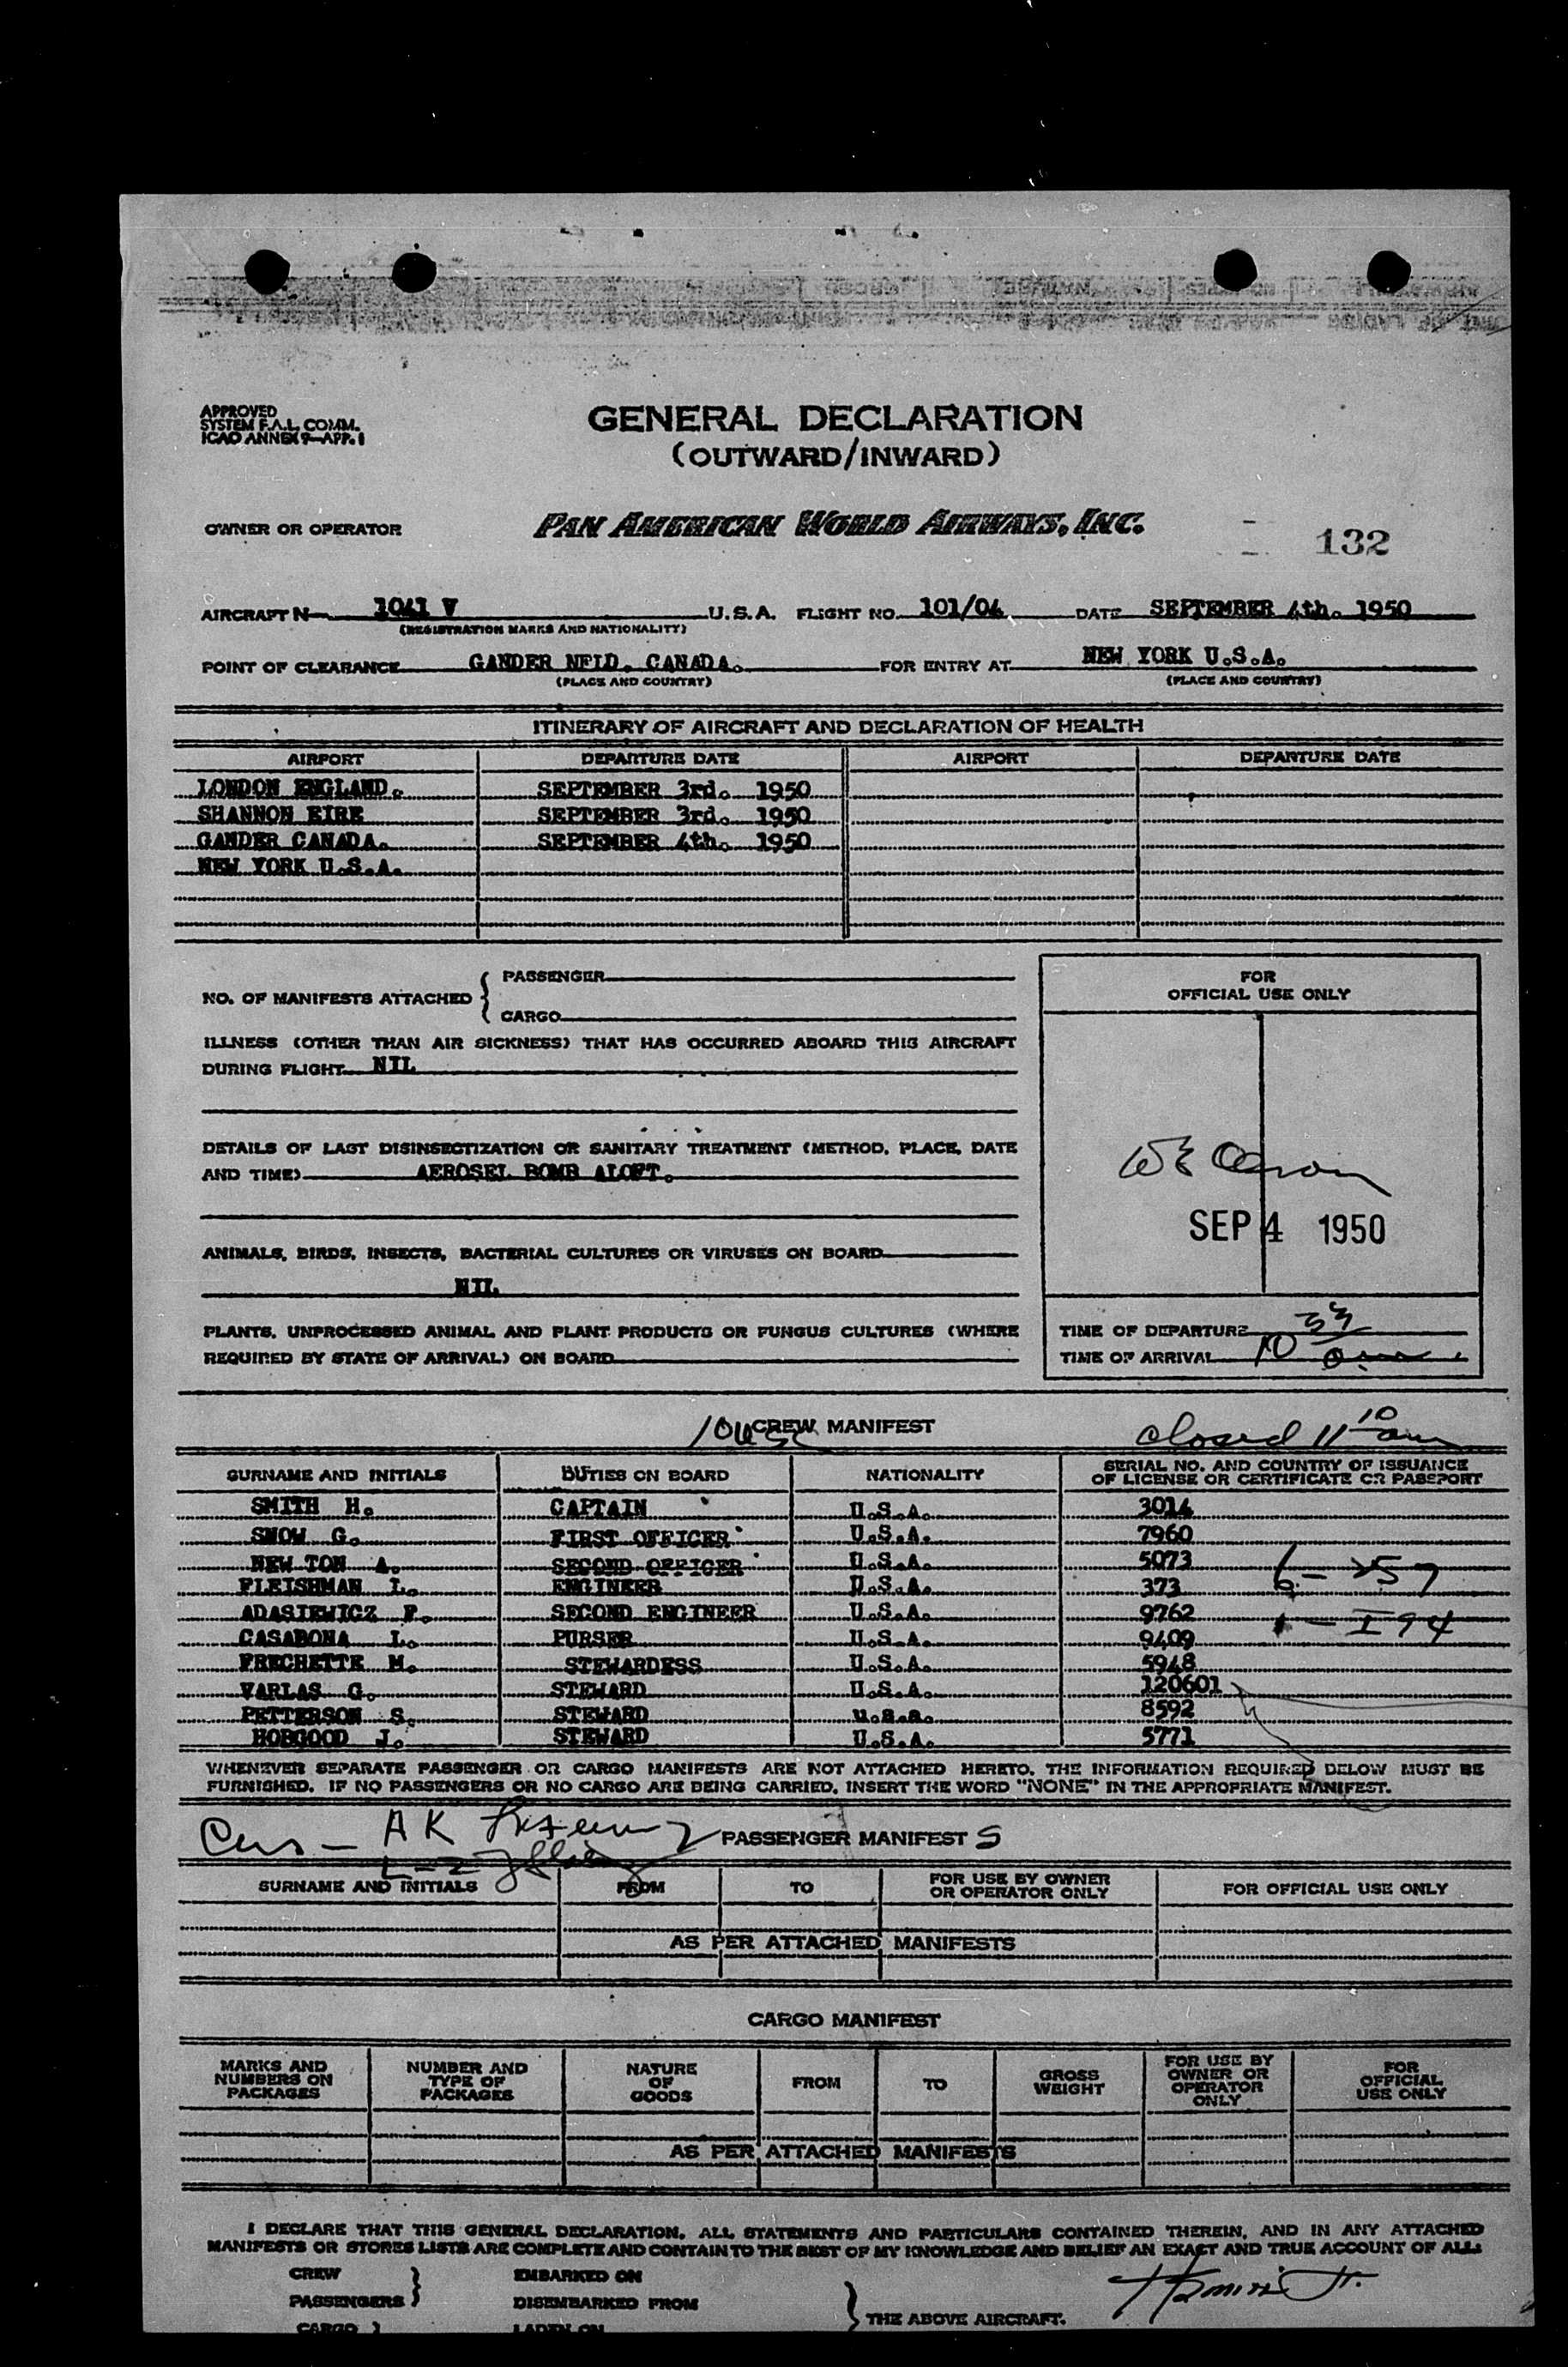 APPROVED
SYSTEM F.A.L. COMM.
ICAO ANNEX 9—APP. 1
GENERAL DECLARATION
(OUTWARD/INWARD)
OWNER OR OPERATOR PAN AMERICAN WORLD AIRWAYS, INC. 132
AIRCRAFT N— 1041 V U.S.A. FLIGHT NO. 101/04 DATE SEPTEMBER 4th. 1950
(REGISTRATION MARKS AND NATIONALITY)
POINT OF CLEARANCE GANDER NFLD. CANADA. FOR ENTRY AT NEW YORK U.S.A.
(PLACE AND COUNTRY) (PLACE AND COUNTRY)
ITINERARY OF AIRCRAFT AND DECLARATION OF HEALTH
AIRPORT DEPARTURE DATE AIRPORT DEPARTURE DATE
LONDON ENGLAND. SEPTEMBER 3rd. 1950
SHANNON EIRE SEPTEMBER 3rd. 1950
GANDER CANADA. SEPTEMBER 4th. 1950
NEW YORK U.S.A.
NO. OF MANIFESTS ATTACHED { PASSENGER
CARGO
ILLNESS (OTHER THAN AIR SICKNESS) THAT HAS OCCURRED ABOARD THIS AIRCRAFT
DURING FLIGHT NIL
DETAILS OF LAST DISINSECTIZATION OR SANITARY TREATMENT (METHOD, PLACE, DATE
AND TIME) AEROSEL BOMB ALOFT.
ANIMALS, BIRDS, INSECTS, BACTERIAL CULTURES OR VIRUSES ON BOARD
NIL
PLANTS, UNPROCESSED ANIMAL AND PLANT PRODUCTS OR FUNGUS CULTURES (WHERE
REQUIRED BY STATE OF ARRIVAL) ON BOARD
FOR
OFFICIAL USE ONLY
SEP 4 1950
TIME OF DEPARTURE
TIME OF ARRIVAL 10 33 am
CREW MANIFEST closed 11 10 am
SURNAME AND INITIALS DUTIES ON BOARD NATIONALITY SERIAL NO. AND COUNTRY OF ISSUANCE
OF LICENSE OR CERTIFICATE OR PASSPORT
SMITH H. CAPTAIN U.S.A. 3014
SNOW G. FIRST OFFICER U.S.A. 7960
NEW TON A. SECOND OFFICER U.S.A. 5073
FLEISHMAN L. ENGINEER U.S.A. 373
ADASIEWICZ F. SECOND ENGINEER U.S.A. 9762
CASABONA L. PURSER U.S.A. 9409
FRECHETTE M. STEWARDESS U.S.A. 5948
VARLAS G. STEWARD U.S.A. 120601
PETTERSON S. STEWARD u.s.a. 8592
HOBGOOD J. STEWARD U.S.A. 5771
6 - 257
1 - I 94
WHENEVER SEPARATE PASSENGER OR CARGO MANIFESTS ARE NOT ATTACHED HERETO, THE INFORMATION REQUIRED BELOW MUST BE
FURNISHED. IF NO PASSENGERS OR NO CARGO ARE BEING CARRIED, INSERT THE WORD "NONE" IN THE APPROPRIATE MANIFEST.
PASSENGER MANIFEST
SURNAME AND INITIALS FROM TO FOR USE BY OWNER
OR OPERATOR ONLY FOR OFFICIAL USE ONLY
AS PER ATTACHED MANIFESTS
CARGO MANIFEST
MARKS AND
NUMBERS ON
PACKAGES NUMBER AND
TYPE OF
PACKAGES NATURE
OF
GOODS FROM TO GROSS
WEIGHT FOR USE BY
OWNER OR
OPERATOR
ONLY FOR
OFFICIAL
USE ONLY
AS PER ATTACHED MANIFESTS
I DECLARE THAT THIS GENERAL DECLARATION, ALL STATEMENTS AND PARTICULARS CONTAINED THEREIN, AND IN ANY ATTACHED
MANIFESTS OR STORES LISTS ARE COMPLETE AND CONTAIN TO THE BEST OF MY KNOWLEDGE AND BELIEF AN EXACT AND TRUE ACCOUNT OF ALL:
CREW EMBARKED ON
PASSENGERS } DISEMBARKED FROM
CARGO LADEN ON } THE ABOVE AIRCRAFT.